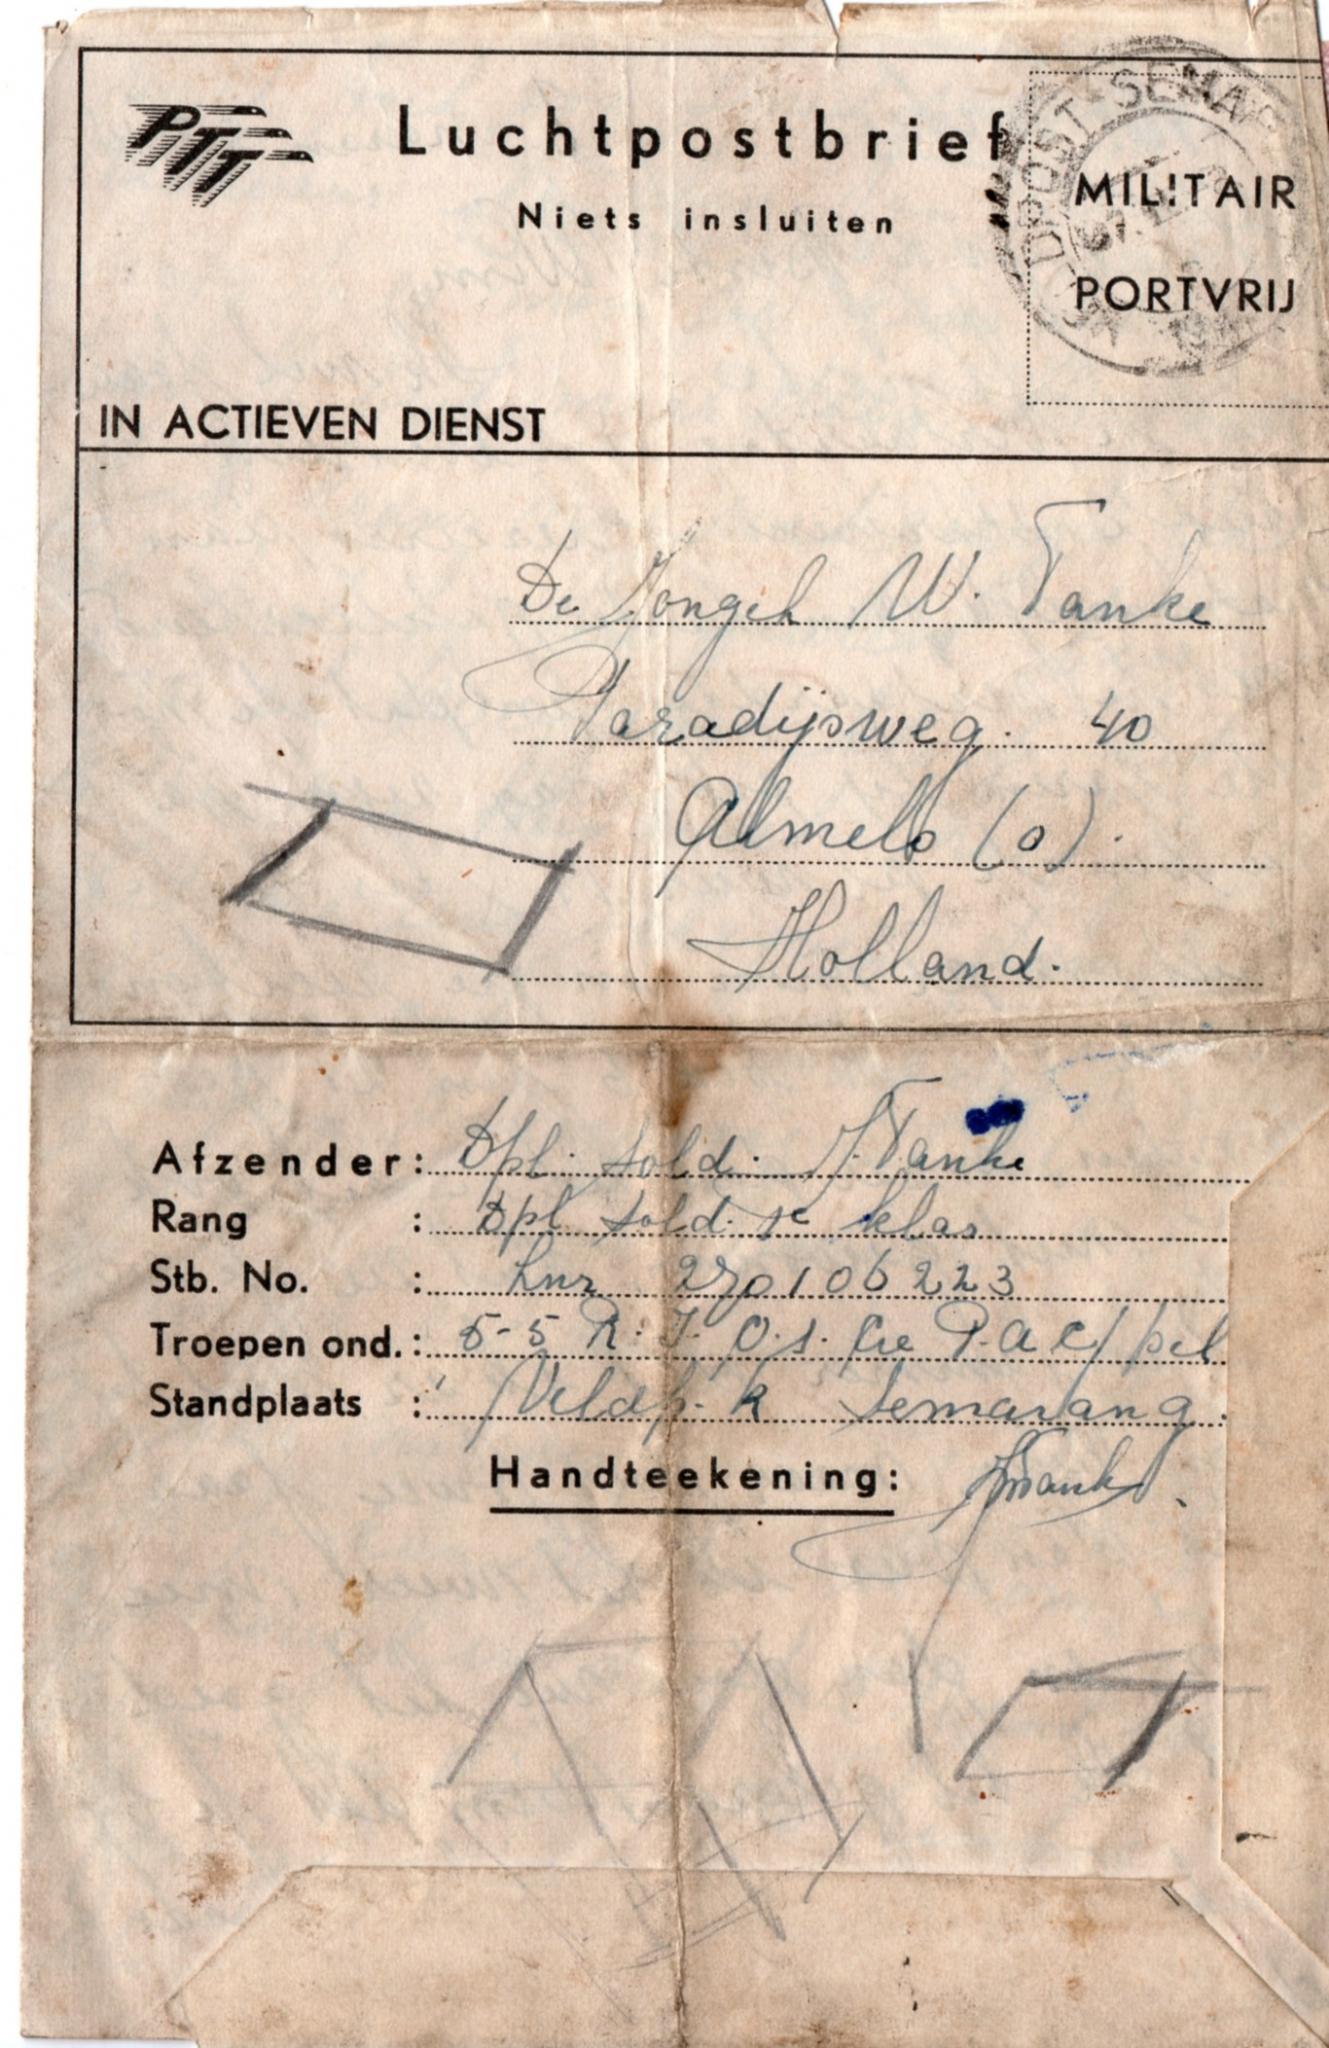 PTT
Luchtpostbrief
Niets insluiten
MILITAIR
PORTVRIJ
IN ACTIEVEN DIENST
De Jongeh W. Tanke
Paradijsweg. 40
Almelo (o).
Holland.
Afzender: Dpl. Sold. J. Tanke
Rang : Dpl Sold. 1e klas
Stb. No. : Lnr 270106223
Troepen ond.: 5-5 R. I. O.s. Cie P.a.C/pel
Standplaats : Veldp. K Semarang.
Handteekening: JTanke.